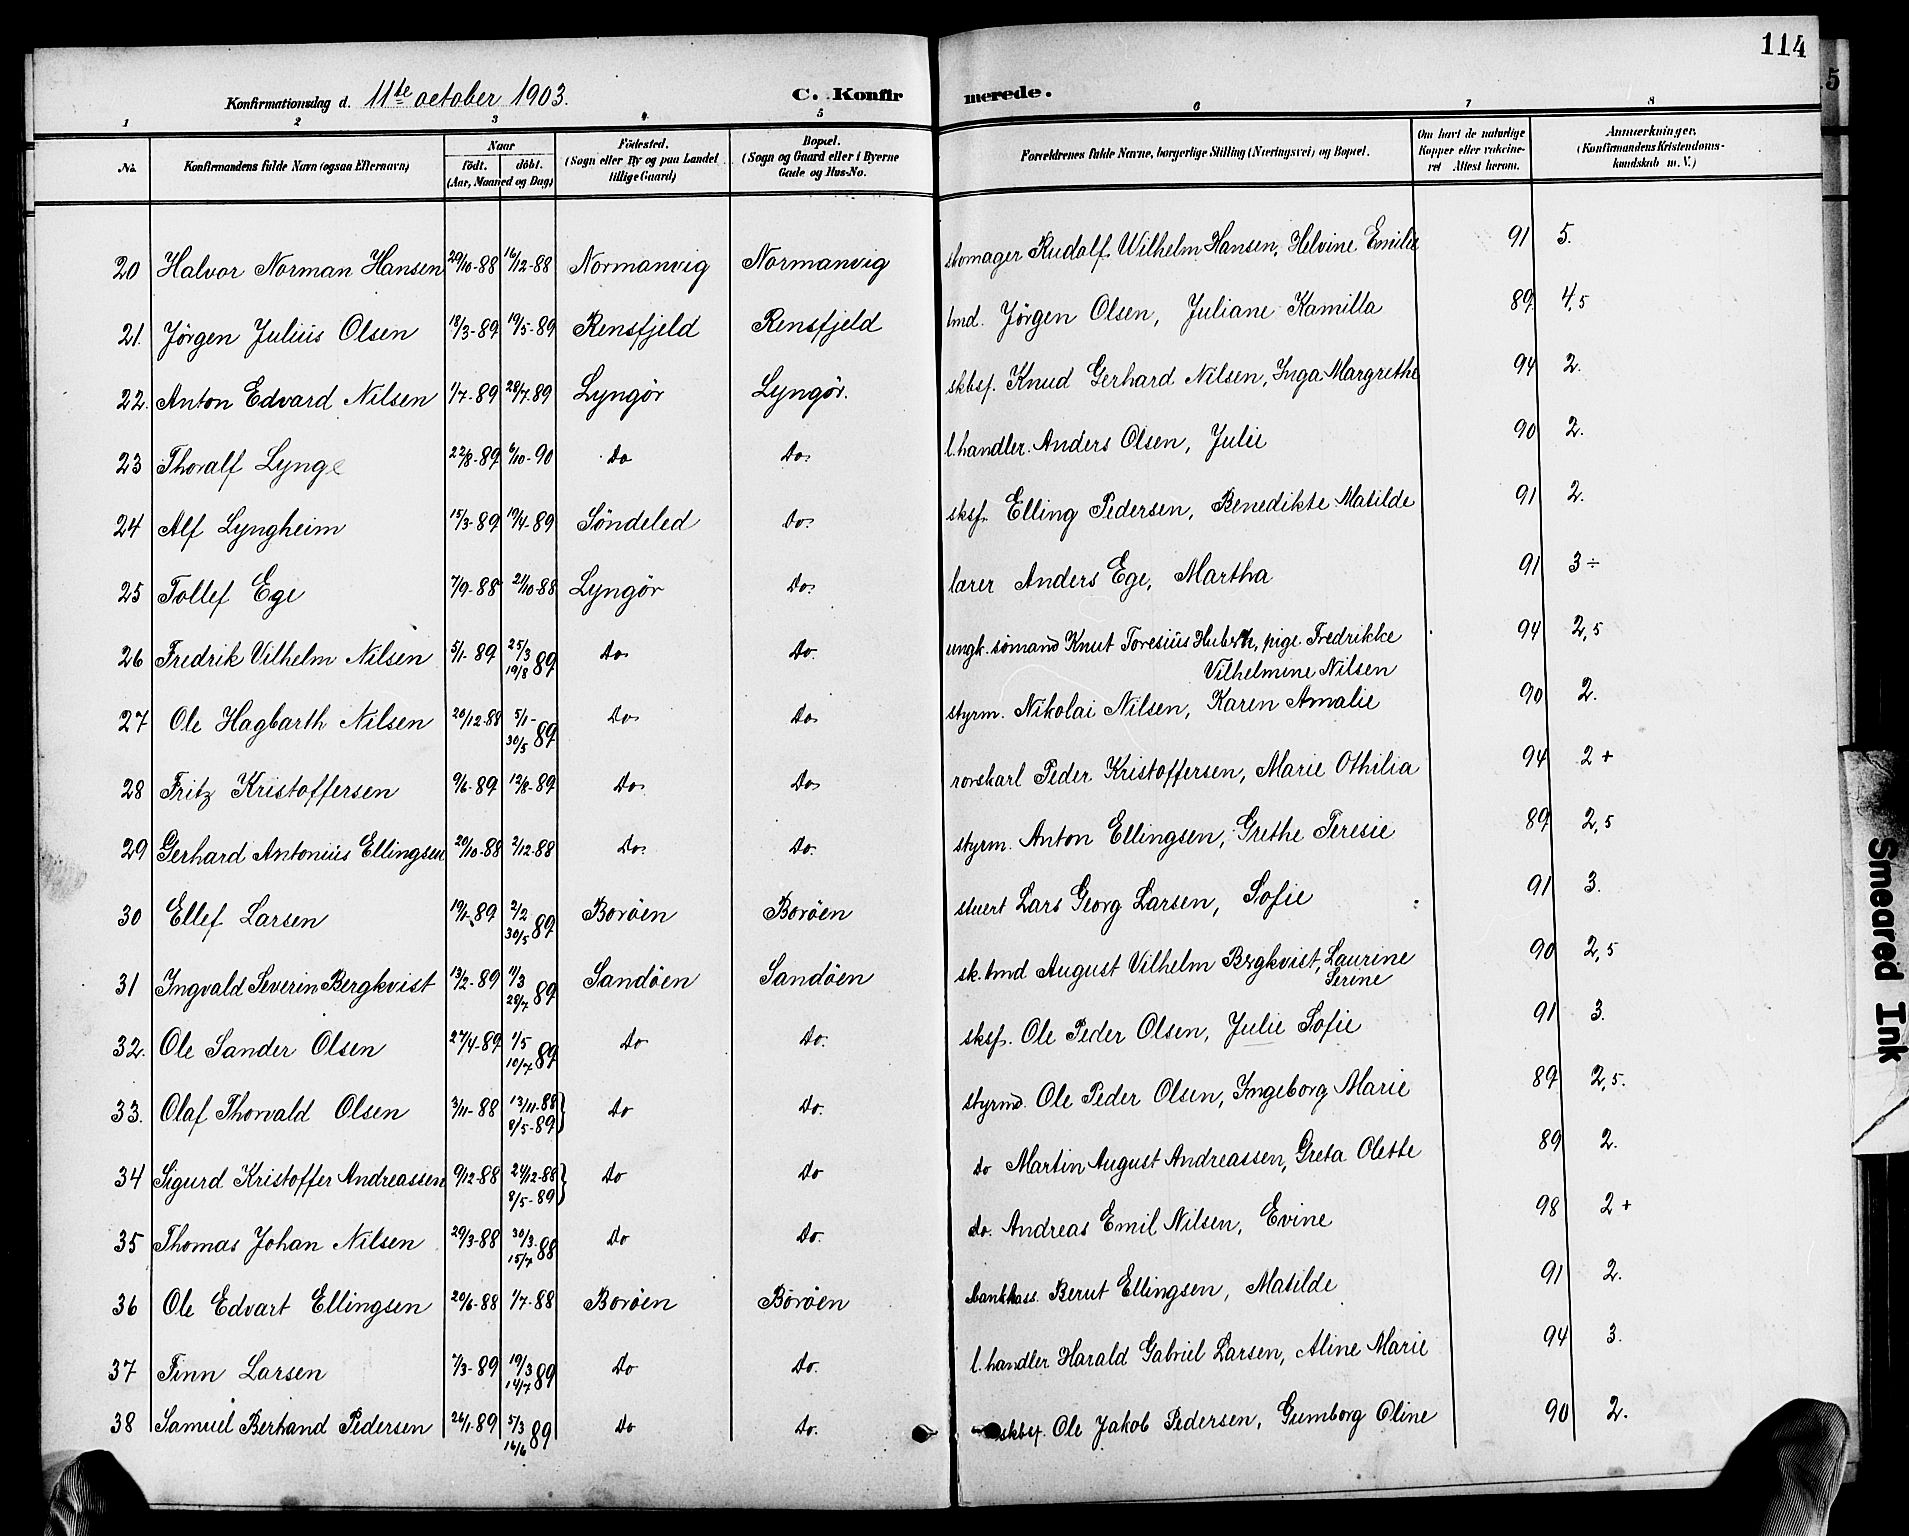 114
Konfirmationsdag d. 11te october 1903. C. Konfirmerede.
1 2 3 4 5 6 7 8
No. Konfirmandens fulde Navn (ogsaa Efternavn) Naar födt. döbt. (Aar, Maaned og Dag) Födested. (Sogn eller By og paa Landet tillige Gaard) Bopæl. (Sogn og Gaard eller i Byerne Gade og Hus-No. Forældrenes fulde Navne, borgerlige Stilling (Næringsvei) og Bopæl. Om havt de naturlige Kopper eller vakcineret Attest herom. Anmærkninger. (Konfirmandens Kristendomskundskab m. V.)
20 Halvor Norman Hansen 29/10-88 16/12-88 Normanvig Normanvig skomager Rudolf Wilhelm Hansen, Helvine Emilie 91 5.
21. Jörgen Julius Olsen 18/3-89 19/5-89 Rensfjeld Rensfjeld tmd. Jörgen Olsen, Juliane Kamilla 89 4,5
22. Anton Edvard Nilsen 1/7-89 28/7-89 Lyngör Lyngör. skbsf. Knud Gerhard Nilsen, Inga Margrethe 94 2.
23 Thoralf Lynge 22/8-89 6/10-90 Do Do l.handler. Anders Olsen, Julie 90 2.
24 Alf Lyngheim 15/3-89 19/4-89 Söndeled Do sksf. Elling Pedersen, Benedikte Matilde 91 2.
25 Tollef Ege 7/9-88 21/10-88 Lyngör Do lærer Anders Ege, Martha 91 3÷
26 Fredrik Vilhelm Nilsen 5/1-89 25/3 19/8 89 Do Do. ungk. sömand Knut Toresius Huberth, pige Fredrikke Vilhelmine Nilsen 94 2,5
27 Ole Hagbarth Nilsen 20/12-88 5/1- 30/5 89 Do Do styrm. Nikolai Nilsen, Karen Amalie 90 2.
28 Fritz Kristoffersen 9/6-89 12/8-89 Do Do rorskarl Peder Kristoffersen, Marie Othilia 94 2+
29 Gerhard Antonius Ellingsen 20/10-88 2/12-88 Do Do. styrm. Anton Ellingsen, Grethe Teresie 89 2,5
30 Ellef Larsen 19/1-89 2/2 30/5 89 Boröen Boröen stuert Lars Georg Larsen, Sofie 91 3.
31 Ingvald Severin Bergkvist 13/2-89 11/3 28/7 89 Sandöen Sandöen sk.tmd August Vilhelm Bergkvist, Laurine Serine 90 2,5
32. Ole Sander Olsen 27/4-89 1/5 10/7 89 Do Do. sksf. Ole Peder Olsen, Julie Sofie 91 3.
33. Olaf Thorvald Olsen 3/11-88 13/11-88 8/5-89 Do Do. styrmd. Ole Peder Olsen, Ingeborg Marie 89 2,5.
34 Sigurd Kristoffer Andreassen 9/12-88 24/12-88 8/5-89 Do Do do Martin August Andreassen, Greta Olette 89 2.
35 Thomas Johan Nilsen 29/3-88 30/3. 15/7 88 Do Do. do. Andreas Emil Nilsen, Evine 98 2+
36 Ole Edvart Ellingsen 20/6-88 1/7-88 Boröen Boröen bankkass. Berut Ellingsen, Matilde 91 2.
37 Finn Larsen 7/3-89 19/3 14/7 89 Do Do. l.handler Harald Gabriel Larsen, Aline Marie 94 3.
38 Samuel Berhand Pedersen 26/1-89 5/3 16/6 89 Do Do. skbsf. Ole Jakob Pedersen, Gumborg Oline 90 2.
Smeared Ink